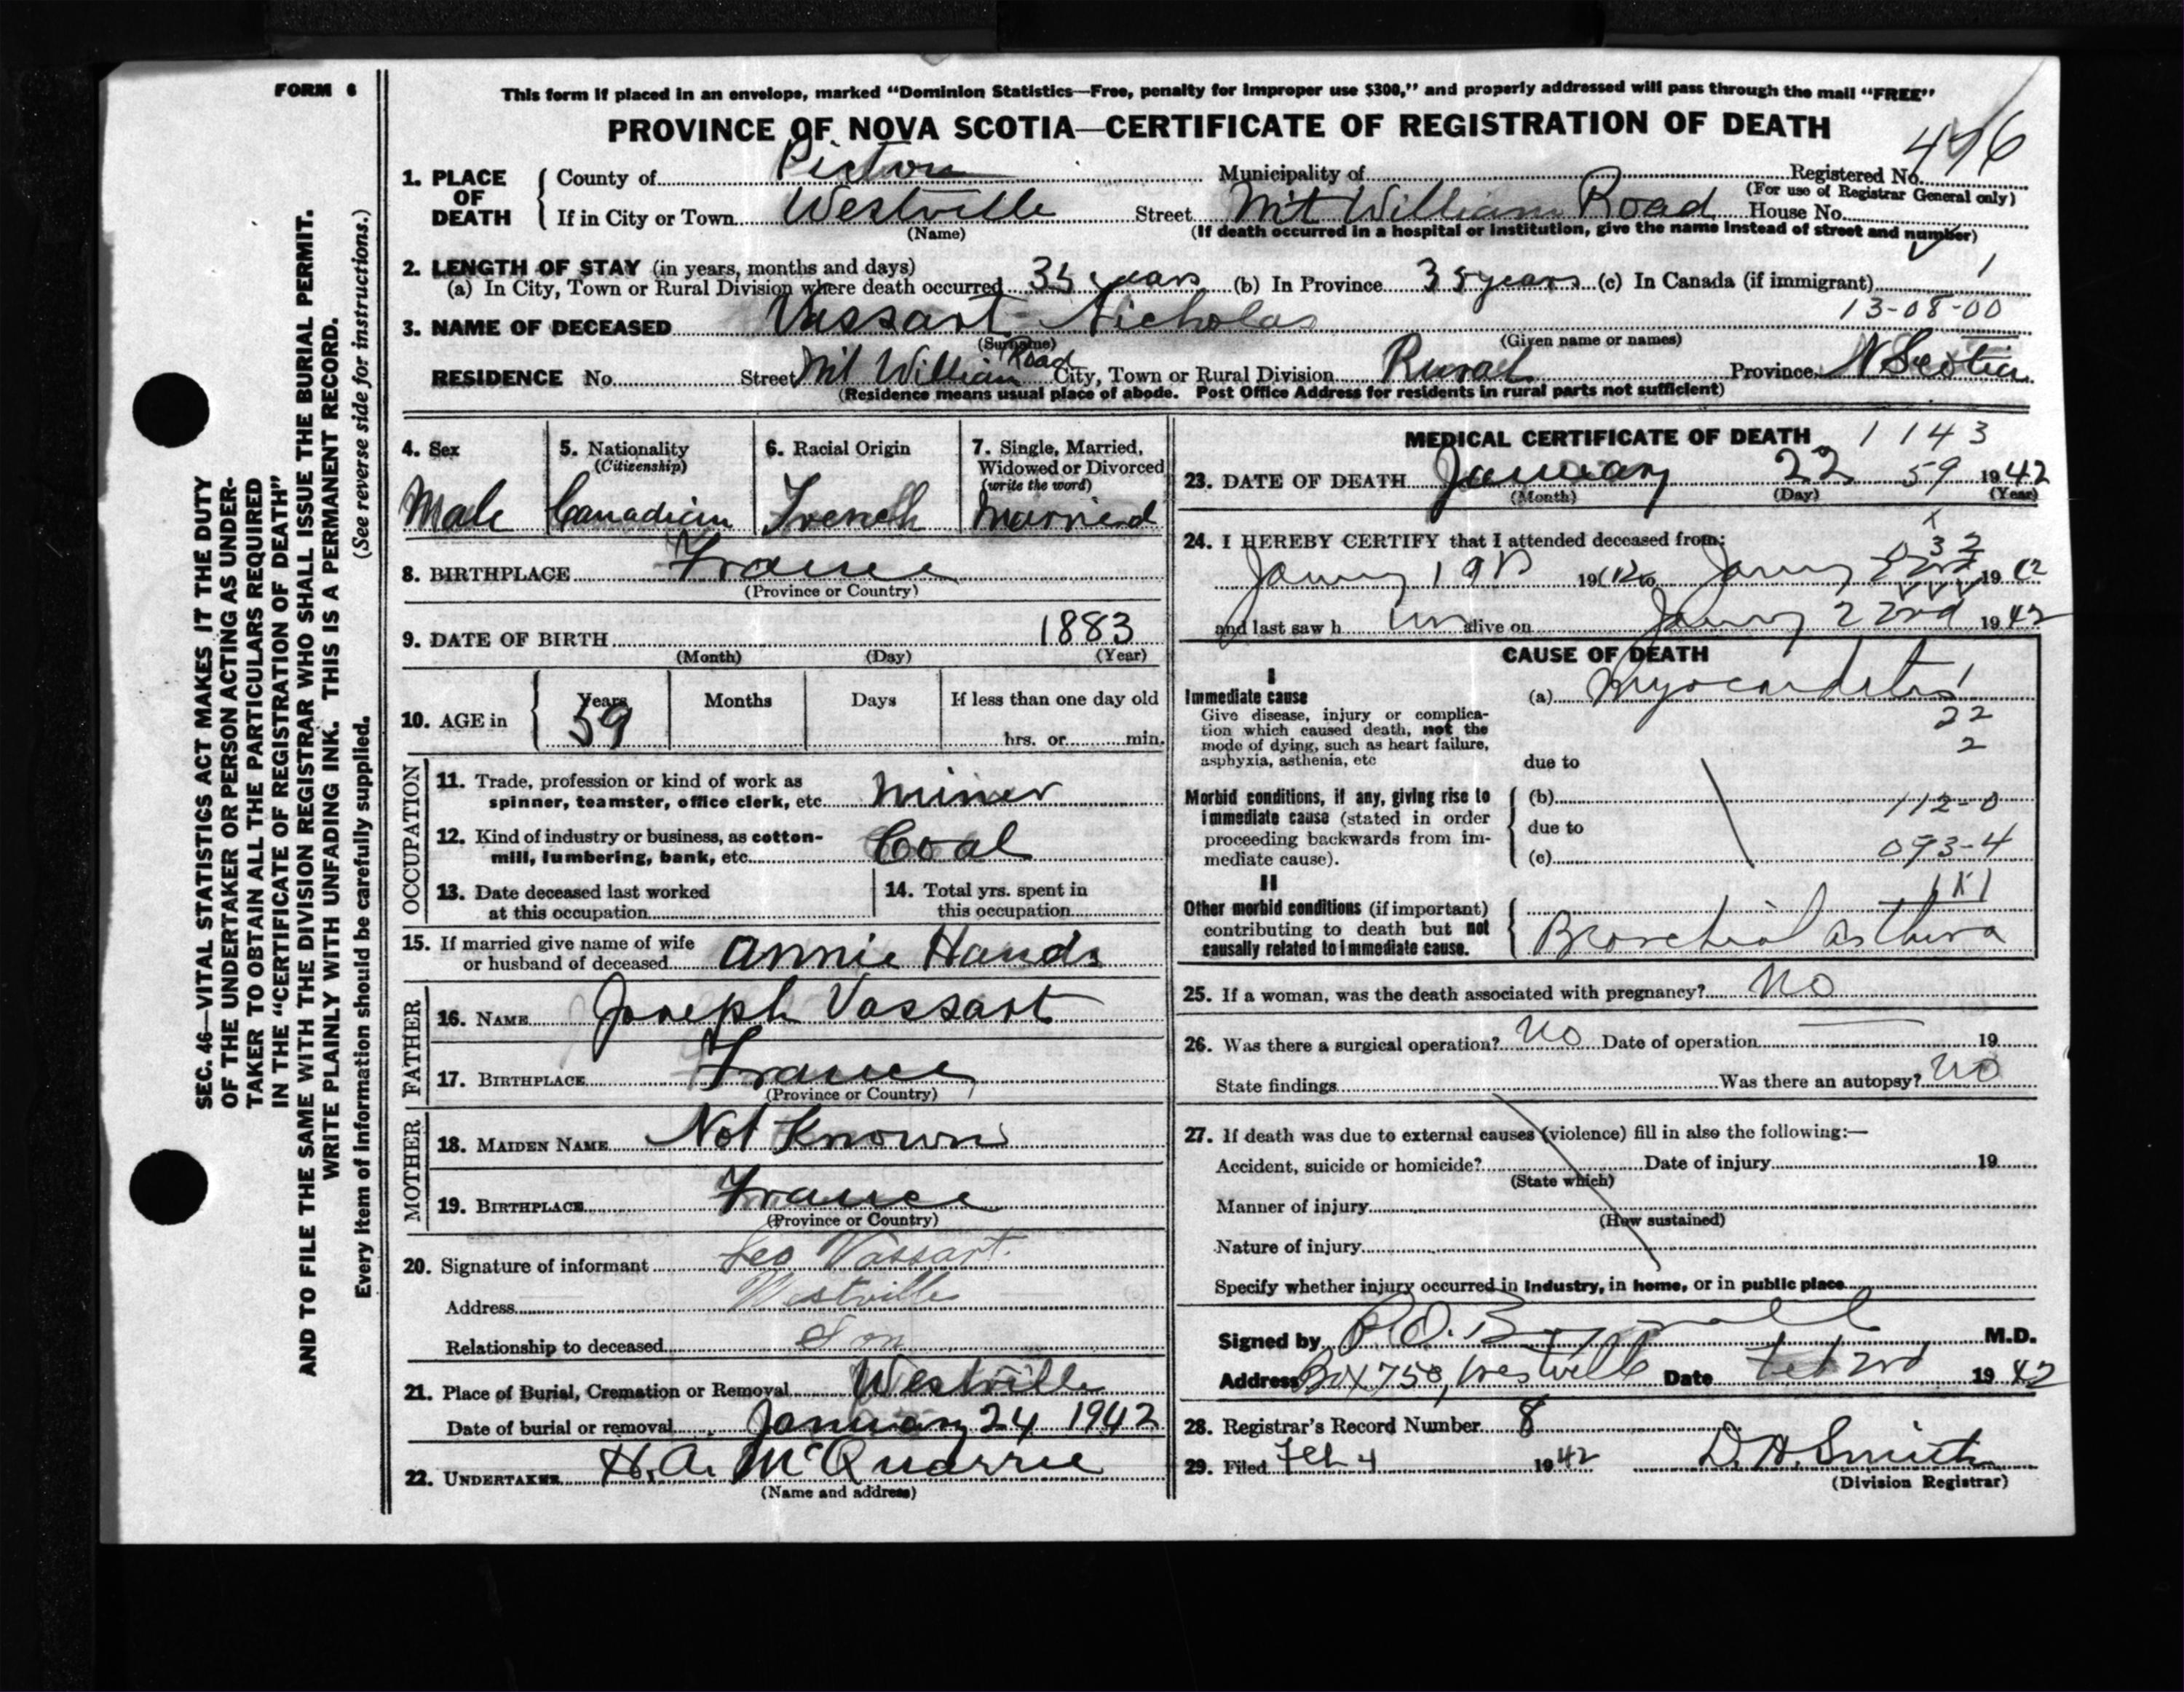 FORM 6
This form if placed in an envelope, marked "Dominion Statistics—Free, penalty for improper use $300," and properly addressed will pass through the mail "FREE"
PROVINCE OF NOVA SCOTIA—CERTIFICATE OF REGISTRATION OF DEATH
SEC. 46—VITAL STATISTICS ACT MAKES IT THE DUTY
OF THE UNDERTAKER OR PERSON ACTING AS UNDER-
TAKER TO OBTAIN ALL THE PARTICULARS REQUIRED
IN THE "CERTIFICATE OF REGISTRATION OF DEATH"
AND TO FILE THE SAME WITH THE DIVISION REGISTRAR WHO SHALL ISSUE THE BURIAL PERMIT.
WRITE PLAINLY WITH UNFADING INK. THIS IS A PERMANENT RECORD.
Every item of information should be carefully supplied. (See reverse side for instructions.)
1. PLACE OF DEATH
County of Pictou Municipality of Registered No. 476
(For use of Registrar General only)
If in City or Town Westville Street Mt William Road House No.
(Name) (If death occurred in a hospital or institution, give the name instead of street and number)
2. LENGTH OF STAY (in years, months and days)
(a) In City, Town or Rural Division where death occurred 35 years (b) In Province 35 years (c) In Canada (if immigrant) 1
13-08-00
3. NAME OF DECEASED Vassart Nicholas
(Surname) (Given name or names)
RESIDENCE No. Street Mt William Road City, Town or Rural Division Rural Province N Scotia
(Residence means usual place of abode. Post Office Address for residents in rural parts not sufficient)
4. Sex
Male
5. Nationality
(Citizenship)
Canadian
6. Racial Origin
French
7. Single, Married,
Widowed or Divorced
(write the word)
Married
8. BIRTHPLACE France
(Province or Country)
9. DATE OF BIRTH 1883
(Month) (Day) (Year)
10. AGE in Years Months Days If less than one day old
59 hrs. or min.
OCCUPATION
11. Trade, profession or kind of work as
spinner, teamster, office clerk, etc. Miner
12. Kind of industry or business, as cotton-
mill, lumbering, bank, etc. Coal
13. Date deceased last worked
at this occupation
14. Total yrs. spent in
this occupation
15. If married give name of wife
or husband of deceased Annie Hands
FATHER
16. NAME Joseph Vassart
17. BIRTHPLACE France
(Province or Country)
MOTHER
18. MAIDEN NAME Not Known
19. BIRTHPLACE France
(Province or Country)
20. Signature of informant Leo Vassart
Address Westville
Relationship to deceased Son
21. Place of Burial, Cremation or Removal Westville
Date of burial or removal January 24 1942
22. UNDERTAKER H. A. McQuarrie
(Name and address)
MEDICAL CERTIFICATE OF DEATH 1143
23. DATE OF DEATH January 22 59 1942
(Month) (Day) (Year)
24. I HEREBY CERTIFY that I attended deceased from:
1942 to 1942
and last saw h im alive on 22nd 1942
CAUSE OF DEATH
I
Immediate cause
Give disease, injury or complica-
tion which caused death, not the
mode of dying, such as heart failure,
asphyxia, asthenia, etc
(a) Myocarditis 1
22
2
due to
Morbid conditions, if any, giving rise to
immediate cause (stated in order
proceeding backwards from im-
mediate cause).
(b) 112-0
due to
(c) 093-4
II
Other morbid conditions (if important)
contributing to death but not
causally related to immediate cause.
Bronchial asthma
25. If a woman, was the death associated with pregnancy? No
26. Was there a surgical operation? No Date of operation 19
State findings Was there an autopsy? No
27. If death was due to external causes (violence) fill in also the following:—
Accident, suicide or homicide? Date of injury 19
(State which)
Manner of injury
(How sustained)
Nature of injury
Specify whether injury occurred in industry, in home, or in public place
Signed by M.D.
Address Box 758, Westville Date Feb 2nd 1942
28. Registrar's Record Number 8
29. Filed Feb 4 1942 D. H. Smith
(Division Registrar)